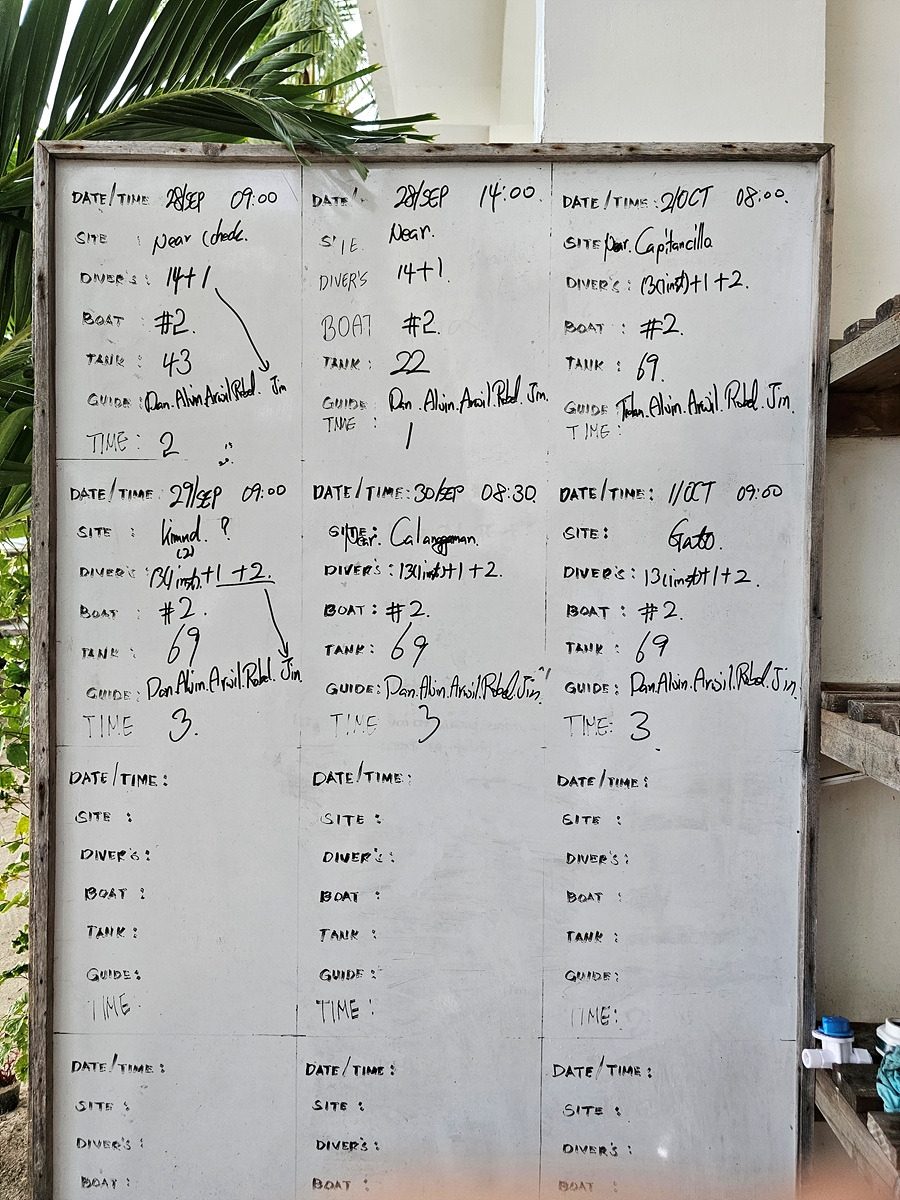 DATE/TIME 28/SEP 09:00
SITE : Near Check.
DIVER'S : 14+1
BOAT : #2.
TANK : 43
GUIDE : Dan. Alvin. Arwil. Robel. Jin
TIME : 2
DATE/ 28/SEP 14:00.
SITE Near.
DIVER'S 14+1
BOAT #2.
TANK : 22
GUIDE Dan. Alvin. Arwil. Robel. Jin.
TIME : 1
DATE/TIME : 2/OCT 08:00.
SITE Capitancillo
DIVER'S : 13(1inst)+1+2.
BOAT : #2.
TANK : 69.
GUIDE Alvin. Arwil. Robel. Jin.
TIME :
DATE/TIME : 29/SEP 09:00
SITE : Kimud. ?
(2)
DIVER'S 13(1inst)+1+2.
BOAT : #2.
TANK : 69
GUIDE : Dan. Alvin. Arwil. Robel. Jin
TIME 3.
DATE/TIME : 30/SEP 08:30.
SITE : Calanggaman.
DIVER'S : 13(1inst)+1+2.
BOAT : #2.
TANK : 69
GUIDE : Dan. Alvin. Arwil. Robel. Jin.
TIME 3
DATE/TIME : 1/OCT 09:00
SITE : Gato.
DIVER'S : 13(1inst)+1+2.
BOAT : #2.
TANK : 69
GUIDE : Dan. Alvin. Arwil. Robel. Jin.
TIME : 3.
DATE/TIME :
SITE :
DIVER'S :
BOAT :
TANK :
GUIDE :
TIME
DATE/TIME :
SITE :
DIVER'S :
BOAT :
TANK :
GUIDE :
TIME :
DATE/TIME :
SITE :
DIVER'S :
BOAT :
TANK :
GUIDE :
TIME :
DATE/TIME :
SITE :
DIVER'S :
BOAT :
DATE/TIME :
SITE :
DIVER'S :
BOAT :
DATE/TIME :
SITE :
DIVER'S :
BOAT :